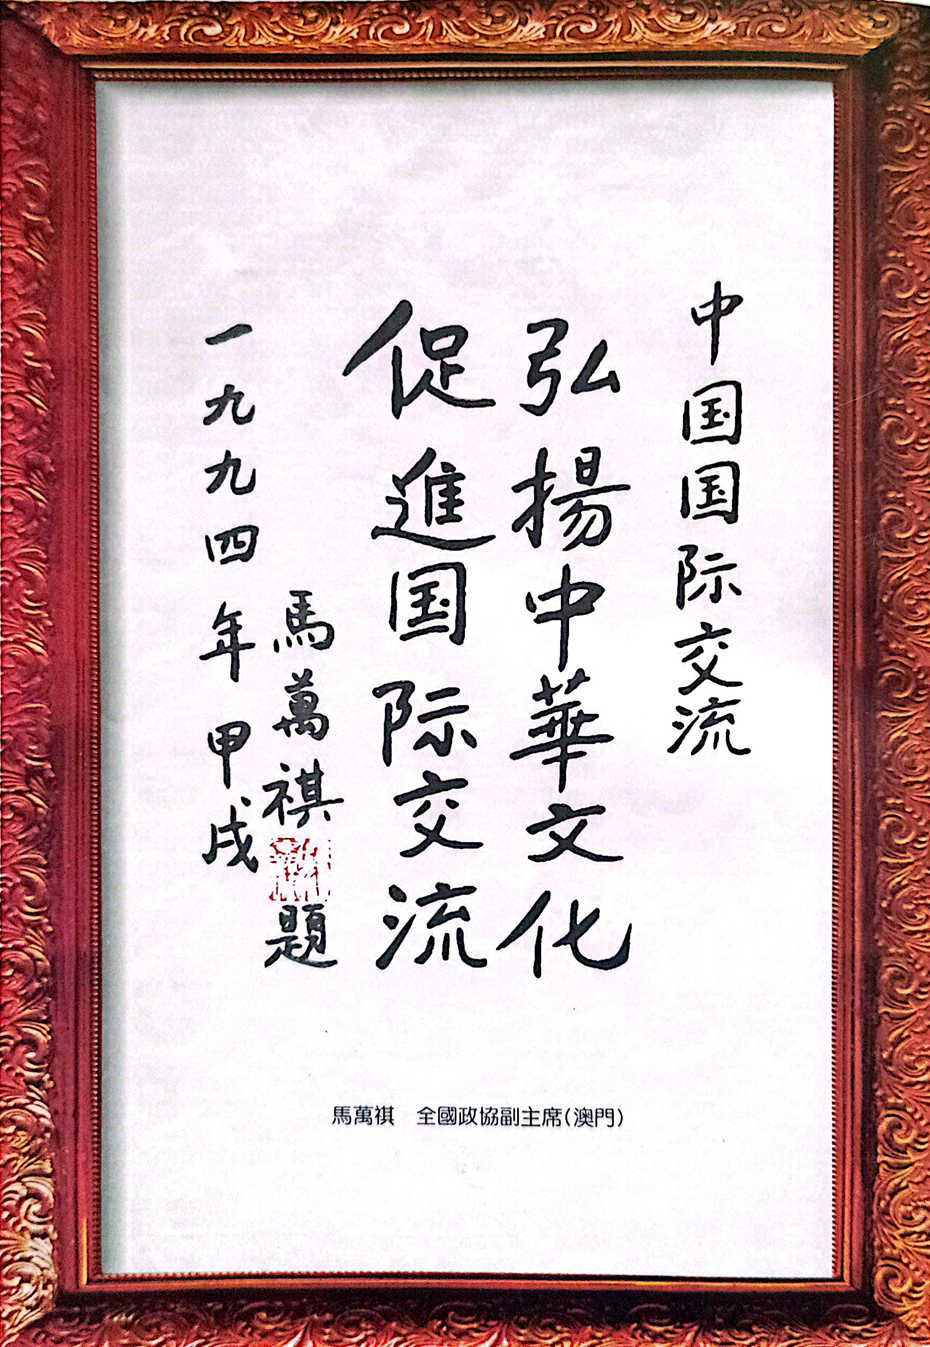 中国国际交流
弘揚中華文化
促進国际交流
馬萬祺題
一九九四年甲戌
馬萬祺 全國政協副主席(澳門)